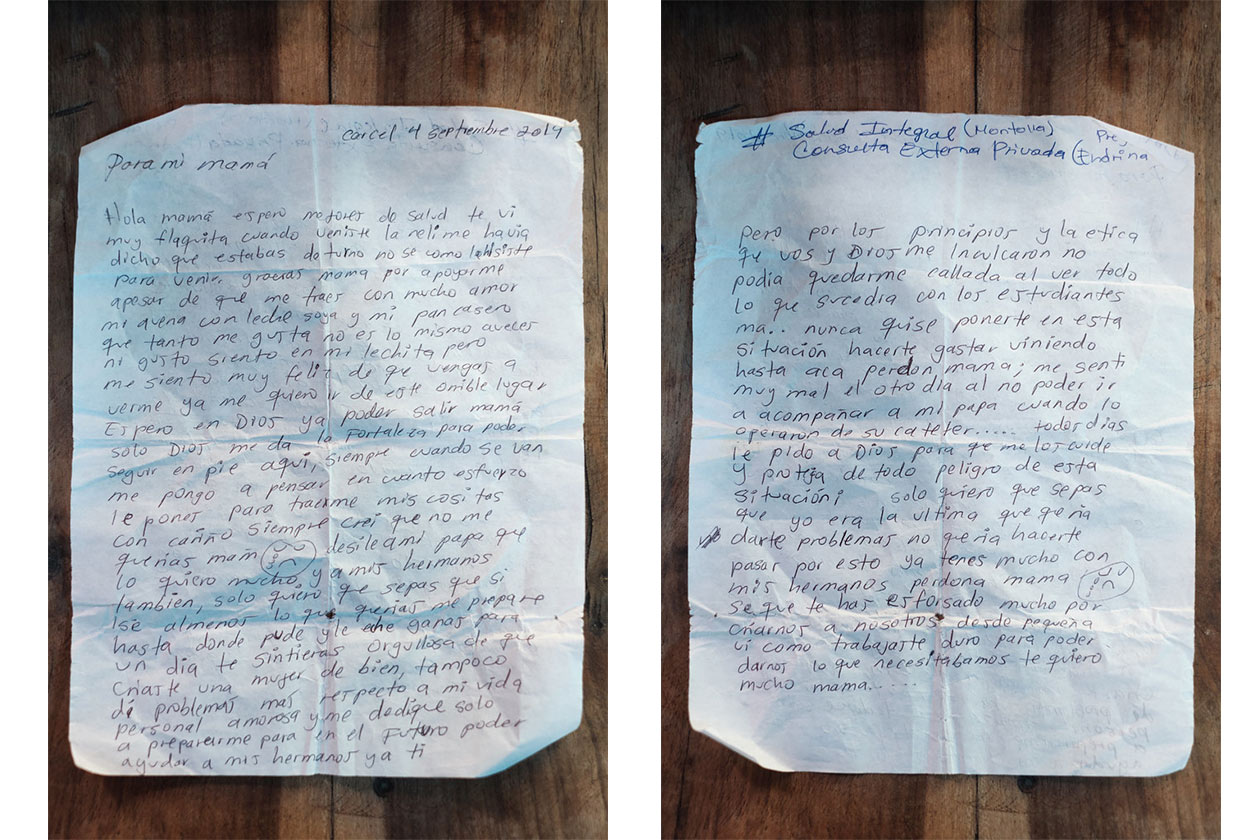 Carcel 4 septiembre 2019
Para mi mamá
Hola mamá espero mejores de salud te vi
muy flaquita cuando veniste la reli me havia
dicho que estabas de turno no se como
para venir, gracias mama por apoyarme
apesar de que me traes con mucho amor
mi avena con leche soya y mi pan casero
que tanto me gusta no es lo mismo aveces
ni gusto siento en mi lechita pero
me siento muy feliz de que vengas a
verme ya me quiero ir de este orrible lugar
Espero en Dios ya poder salir mamá
solo Dios me da la Fortaleza para poder
seguir en pie aqui, siempre cuando se van
me pongo a pensar en cuanto esfuerzo
le pones para traerme mis cositas
con cariño siempre crei que no me
querias mam desile a mi papa que
lo quiero mucho, y a mis hermanos
tambien, solo quiero que sepas que si
almenos lo que querias me prepare
hasta donde pude y le eche ganas para
un dia te sintieras orgullosa de que
Criaste una mujer de bien, tampoco
di problemas mas respecto a mi vida
personal amorosa y me dedique solo
a prepararme para en el Futuro poder
ayudar a mis hermanos y a ti
# Salud Integral (Montolla)
Consulta Externa Privada (Endrina
pero por los principios y la etica
que vos y Dios me Inculcaron no
podia quedarme callada al ver todo
lo que sucedia con los estudiantes
ma.. nunca quise ponerte en esta
situación hacerte gastar viniendo
hasta aca perdon mama; me senti
muy mal el otro dia al no poder ir
a acompañar a mi papa cuando lo
operaron de su cateter..... todos dias
le pido a Dios para que me los cuide
y protija de todo peligro de esta
situación; solo quiero que sepas
que yo era la ultima que queria
darte problemas no queria hacerte
pasar por esto ya tenes mucho con
mis hermanos perdona mama
se que te has esforsado mucho por
criarnos a nosotros desde pequeña
vi como trabajaste duro para poder
darnos lo que necesitabamos te quiero
mucho mama......